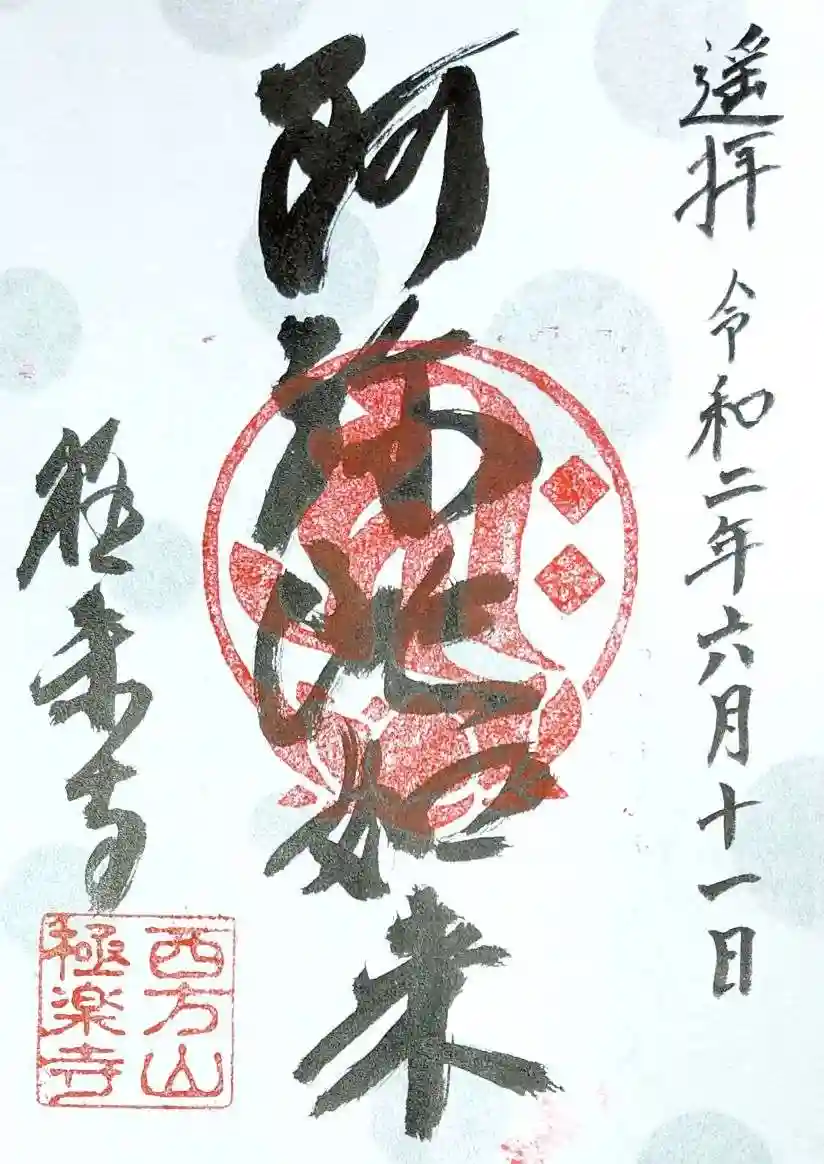 遥拝 令和二年六月十一日
阿弥陀如来
極楽寺
西方山
極楽寺